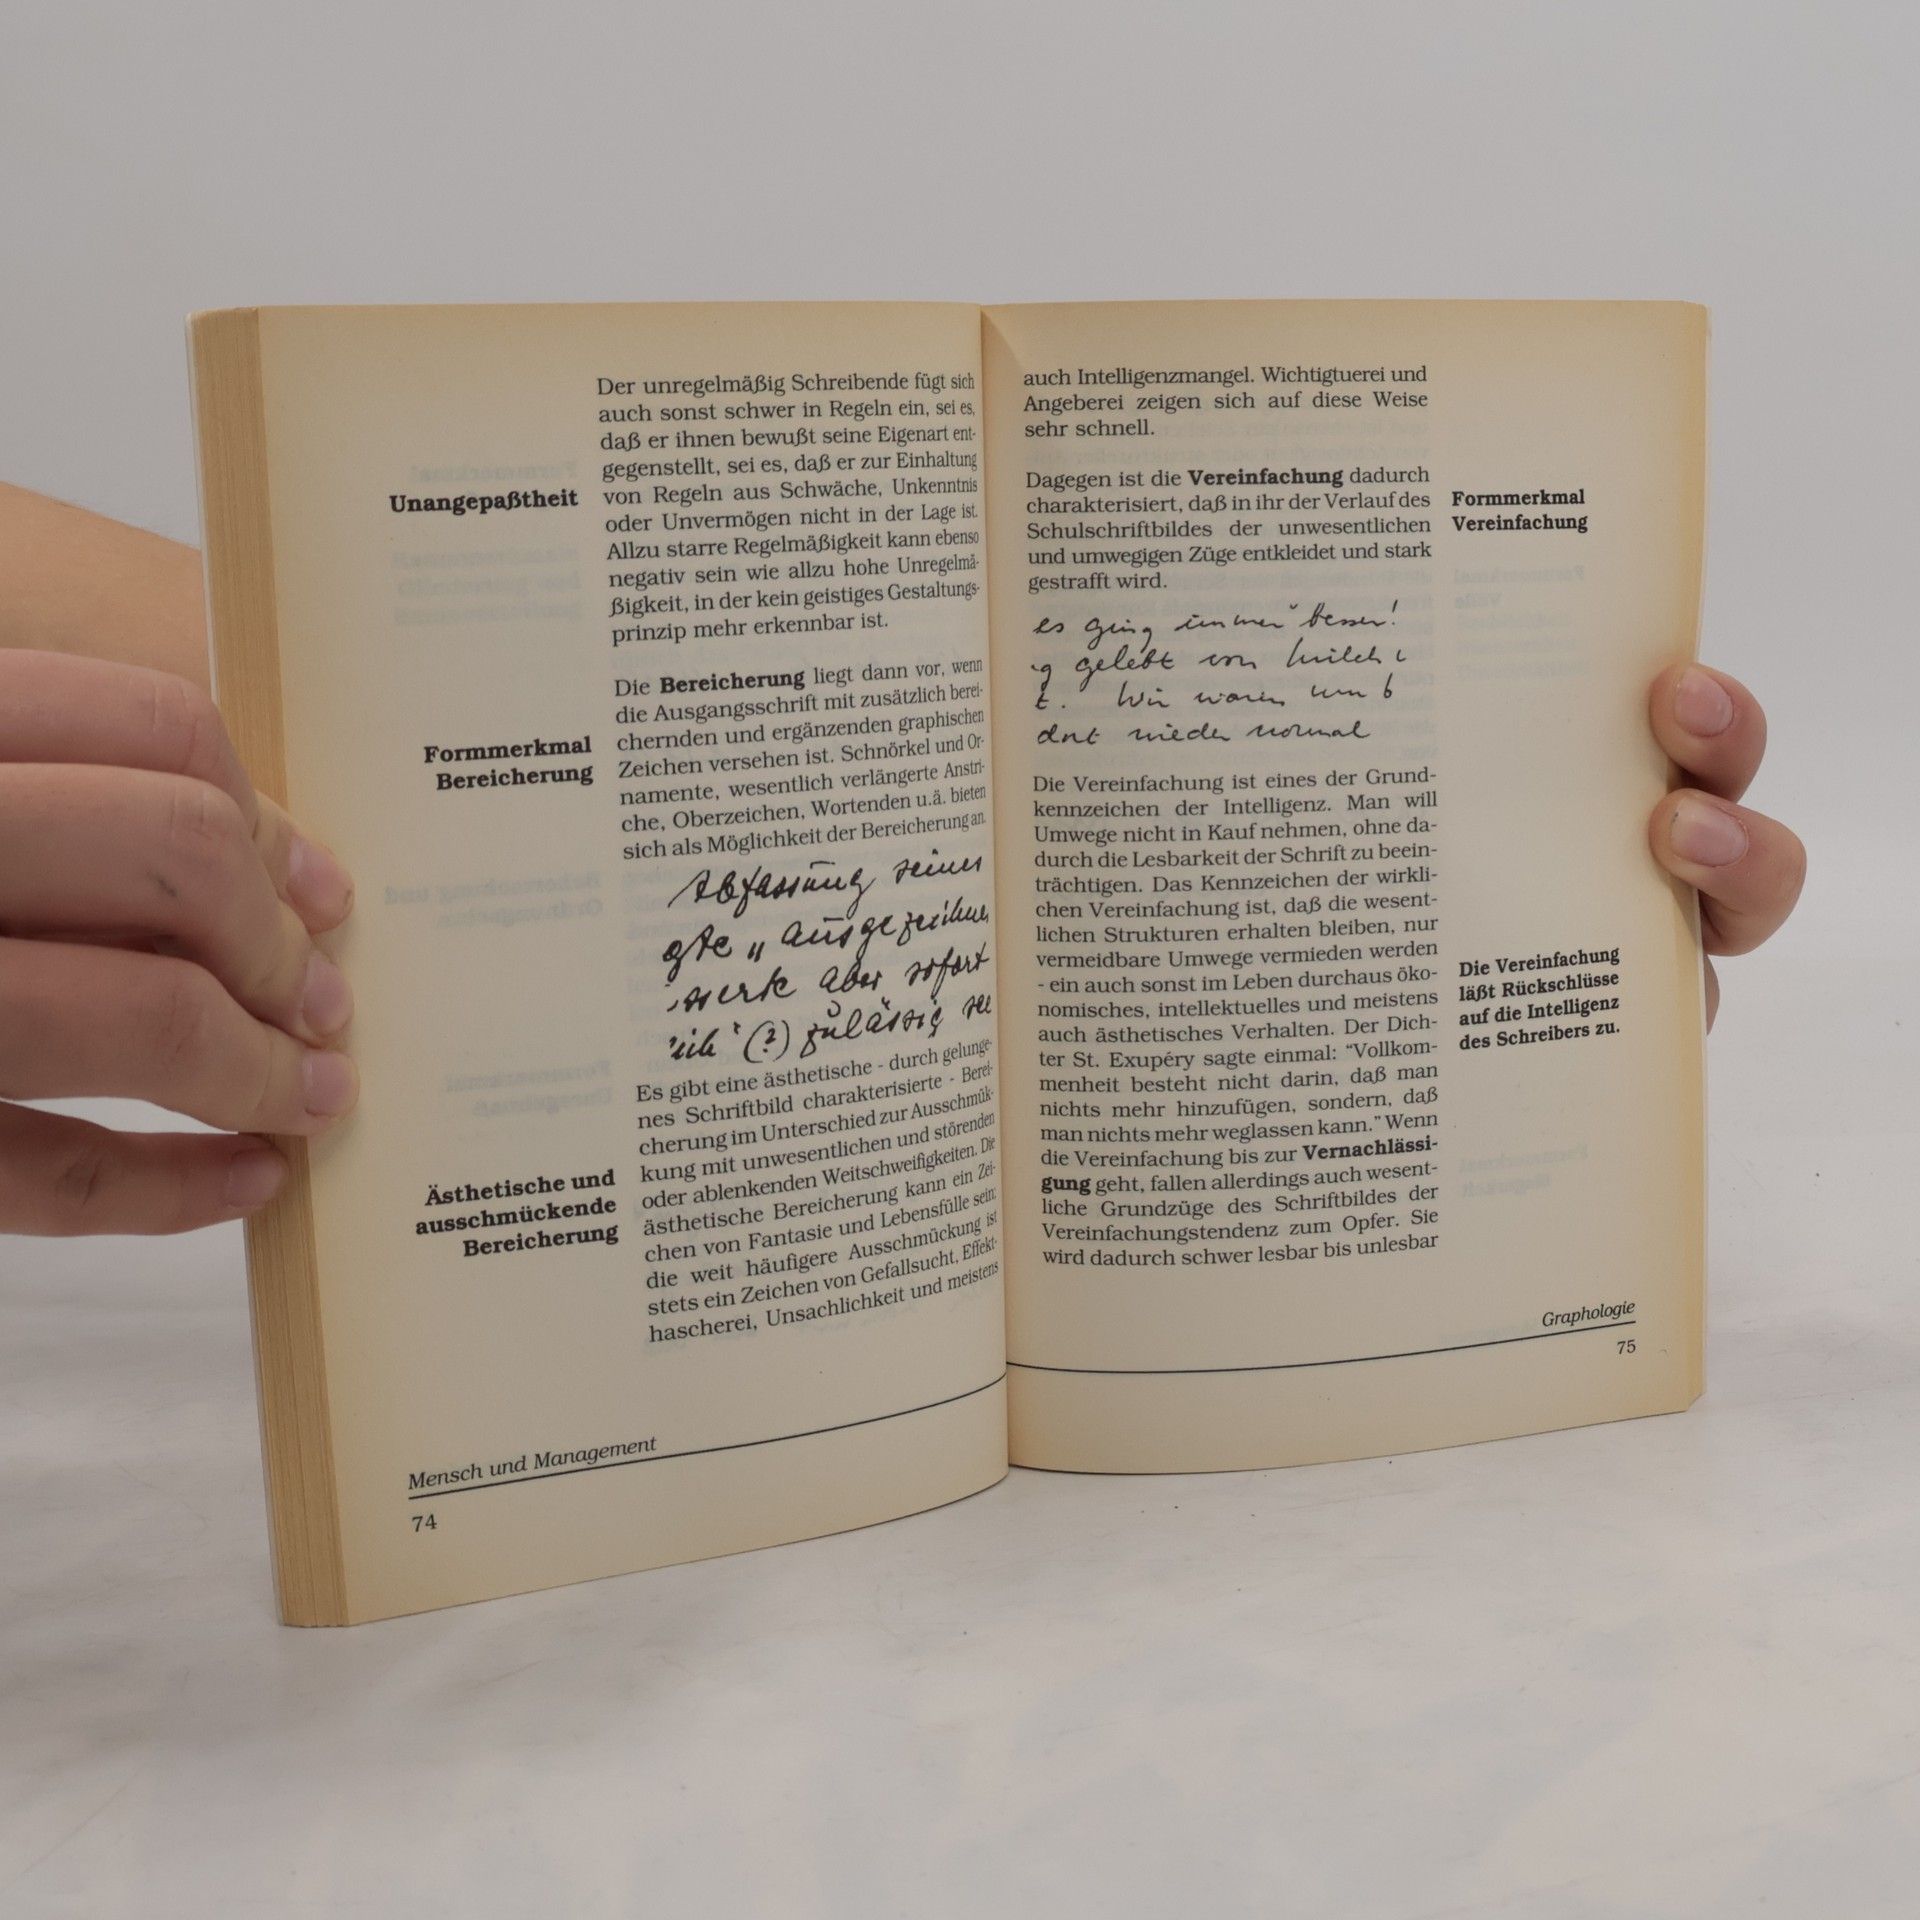 Der unregelmäßig Schreibende fügt sich
auch sonst schwer in Regeln ein, sei es,
daß er ihnen bewußt seine Eigenart ent-
gegenstellt, sei es, daß er zur Einhaltung
Unangepaßtheit
von Regeln aus Schwäche, Unkenntnis
oder Unvermögen nicht in der Lage ist.
Allzu starre Regelmäßigkeit kann ebenso
negativ sein wie allzu hohe Unregelmä-
ßigkeit, in der kein geistiges Gestaltungs-
prinzip mehr erkennbar ist.
Die Bereicherung liegt dann vor, wenn
die Ausgangsschrift mit zusätzlich berei-
chernden und ergänzenden graphischen
Formmerkmal
Bereicherung
Zeichen versehen ist. Schnörkel und Or-
namente, wesentlich verlängerte Anstri-
che, Oberzeichen, Wortenden u.ä. bieten
sich als Möglichkeit der Bereicherung an.
Abfassung seiner
gte „ausgezeichne
aber sofort
(?) zulässig
Es gibt eine ästhetische - durch gelunge-
nes Schriftbild charakterisierte - Berei-
cherung im Unterschied zur Ausschmük-
kung mit unwesentlichen und störenden
oder ablenkenden Weitschweifigkeiten. Die
Ästhetische und
ausschmückende
Bereicherung
ästhetische Bereicherung kann ein Zei-
chen von Fantasie und Lebensfülle sein;
die weit häufigere Ausschmückung ist
stets ein Zeichen von Gefallsucht, Effekt-
hascherei, Unsachlichkeit und meistens
Mensch und Management
74
auch Intelligenzmangel. Wichtigtuerei und
Angeberei zeigen sich auf diese Weise
sehr schnell.
Dagegen ist die Vereinfachung dadurch
charakterisiert, daß in ihr der Verlauf des
Schulschriftbildes der unwesentlichen
und umwegigen Züge entkleidet und stark
gestrafft wird.
Formmerkmal
Vereinfachung
es ging immer besser!
g gelebt von Milch
t. Wir waren um 6
dort wieder normal
Die Vereinfachung ist eines der Grund-
kennzeichen der Intelligenz. Man will
Umwege nicht in Kauf nehmen, ohne da-
durch die Lesbarkeit der Schrift zu beein-
trächtigen. Das Kennzeichen der wirkli-
chen Vereinfachung ist, daß die wesent-
lichen Strukturen erhalten bleiben, nur
vermeidbare Umwege vermieden werden
- ein auch sonst im Leben durchaus öko-
nomisches, intellektuelles und meistens
auch ästhetisches Verhalten. Der Dich-
ter St. Exupéry sagte einmal: “Vollkom-
menheit besteht nicht darin, daß man
nichts mehr hinzufügen, sondern, daß
man nichts mehr weglassen kann.” Wenn
die Vereinfachung bis zur Vernachlässi-
gung geht, fallen allerdings auch wesent-
liche Grundzüge des Schriftbildes der
Vereinfachungstendenz zum Opfer. Sie
wird dadurch schwer lesbar bis unlesbar
Die Vereinfachung
läßt Rückschlüsse
auf die Intelligenz
des Schreibers zu.
Graphologie
75